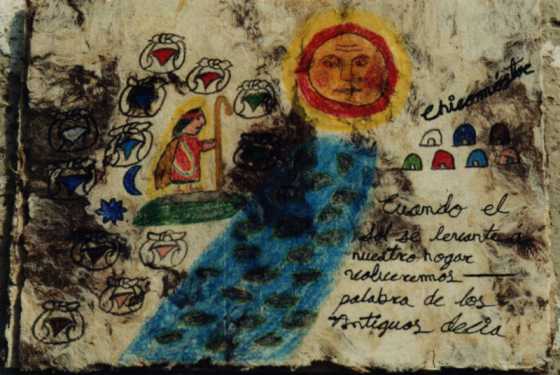 chicomóstoc
Cuando el
sol se levante a
nuestro hogar
volveremos —
palabra de los
Antiguos